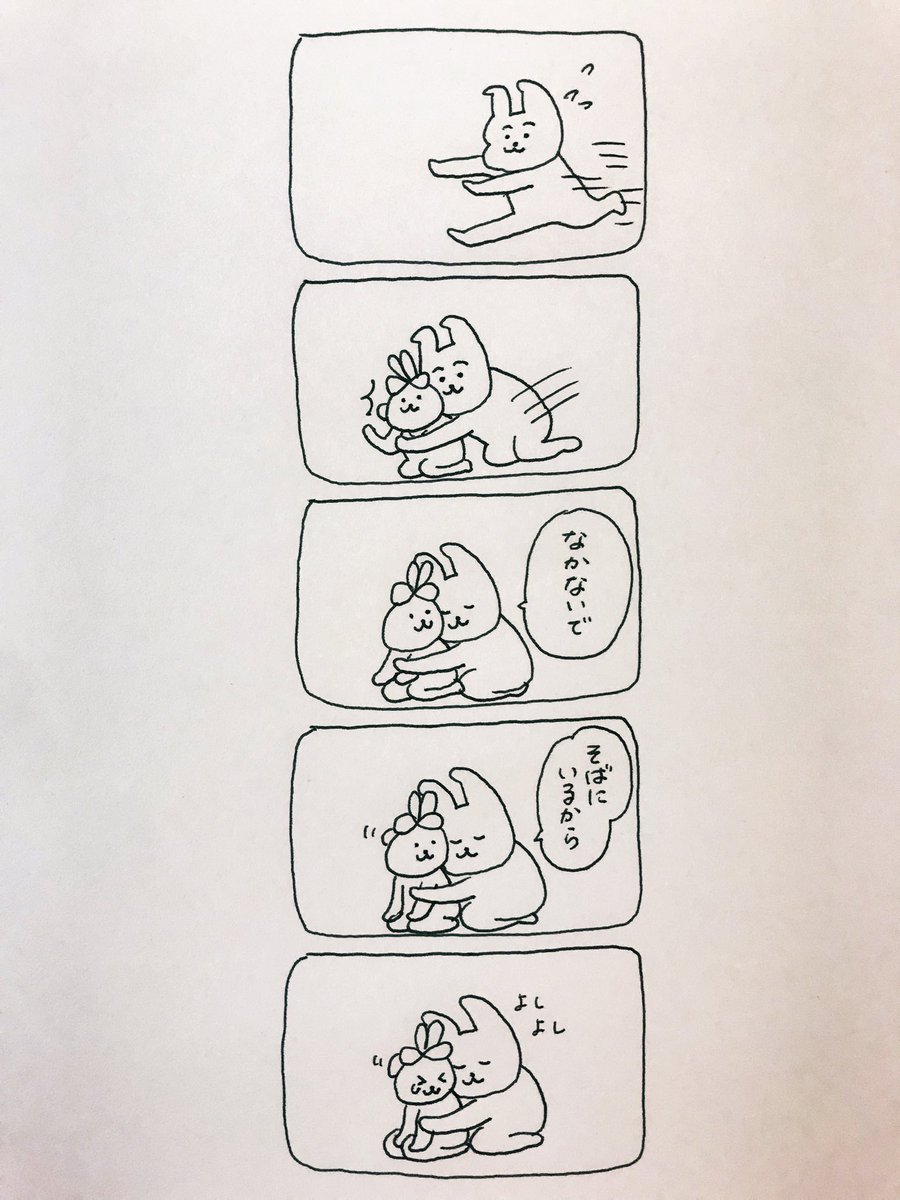 なかないで
そばに
いるから
よし
よし